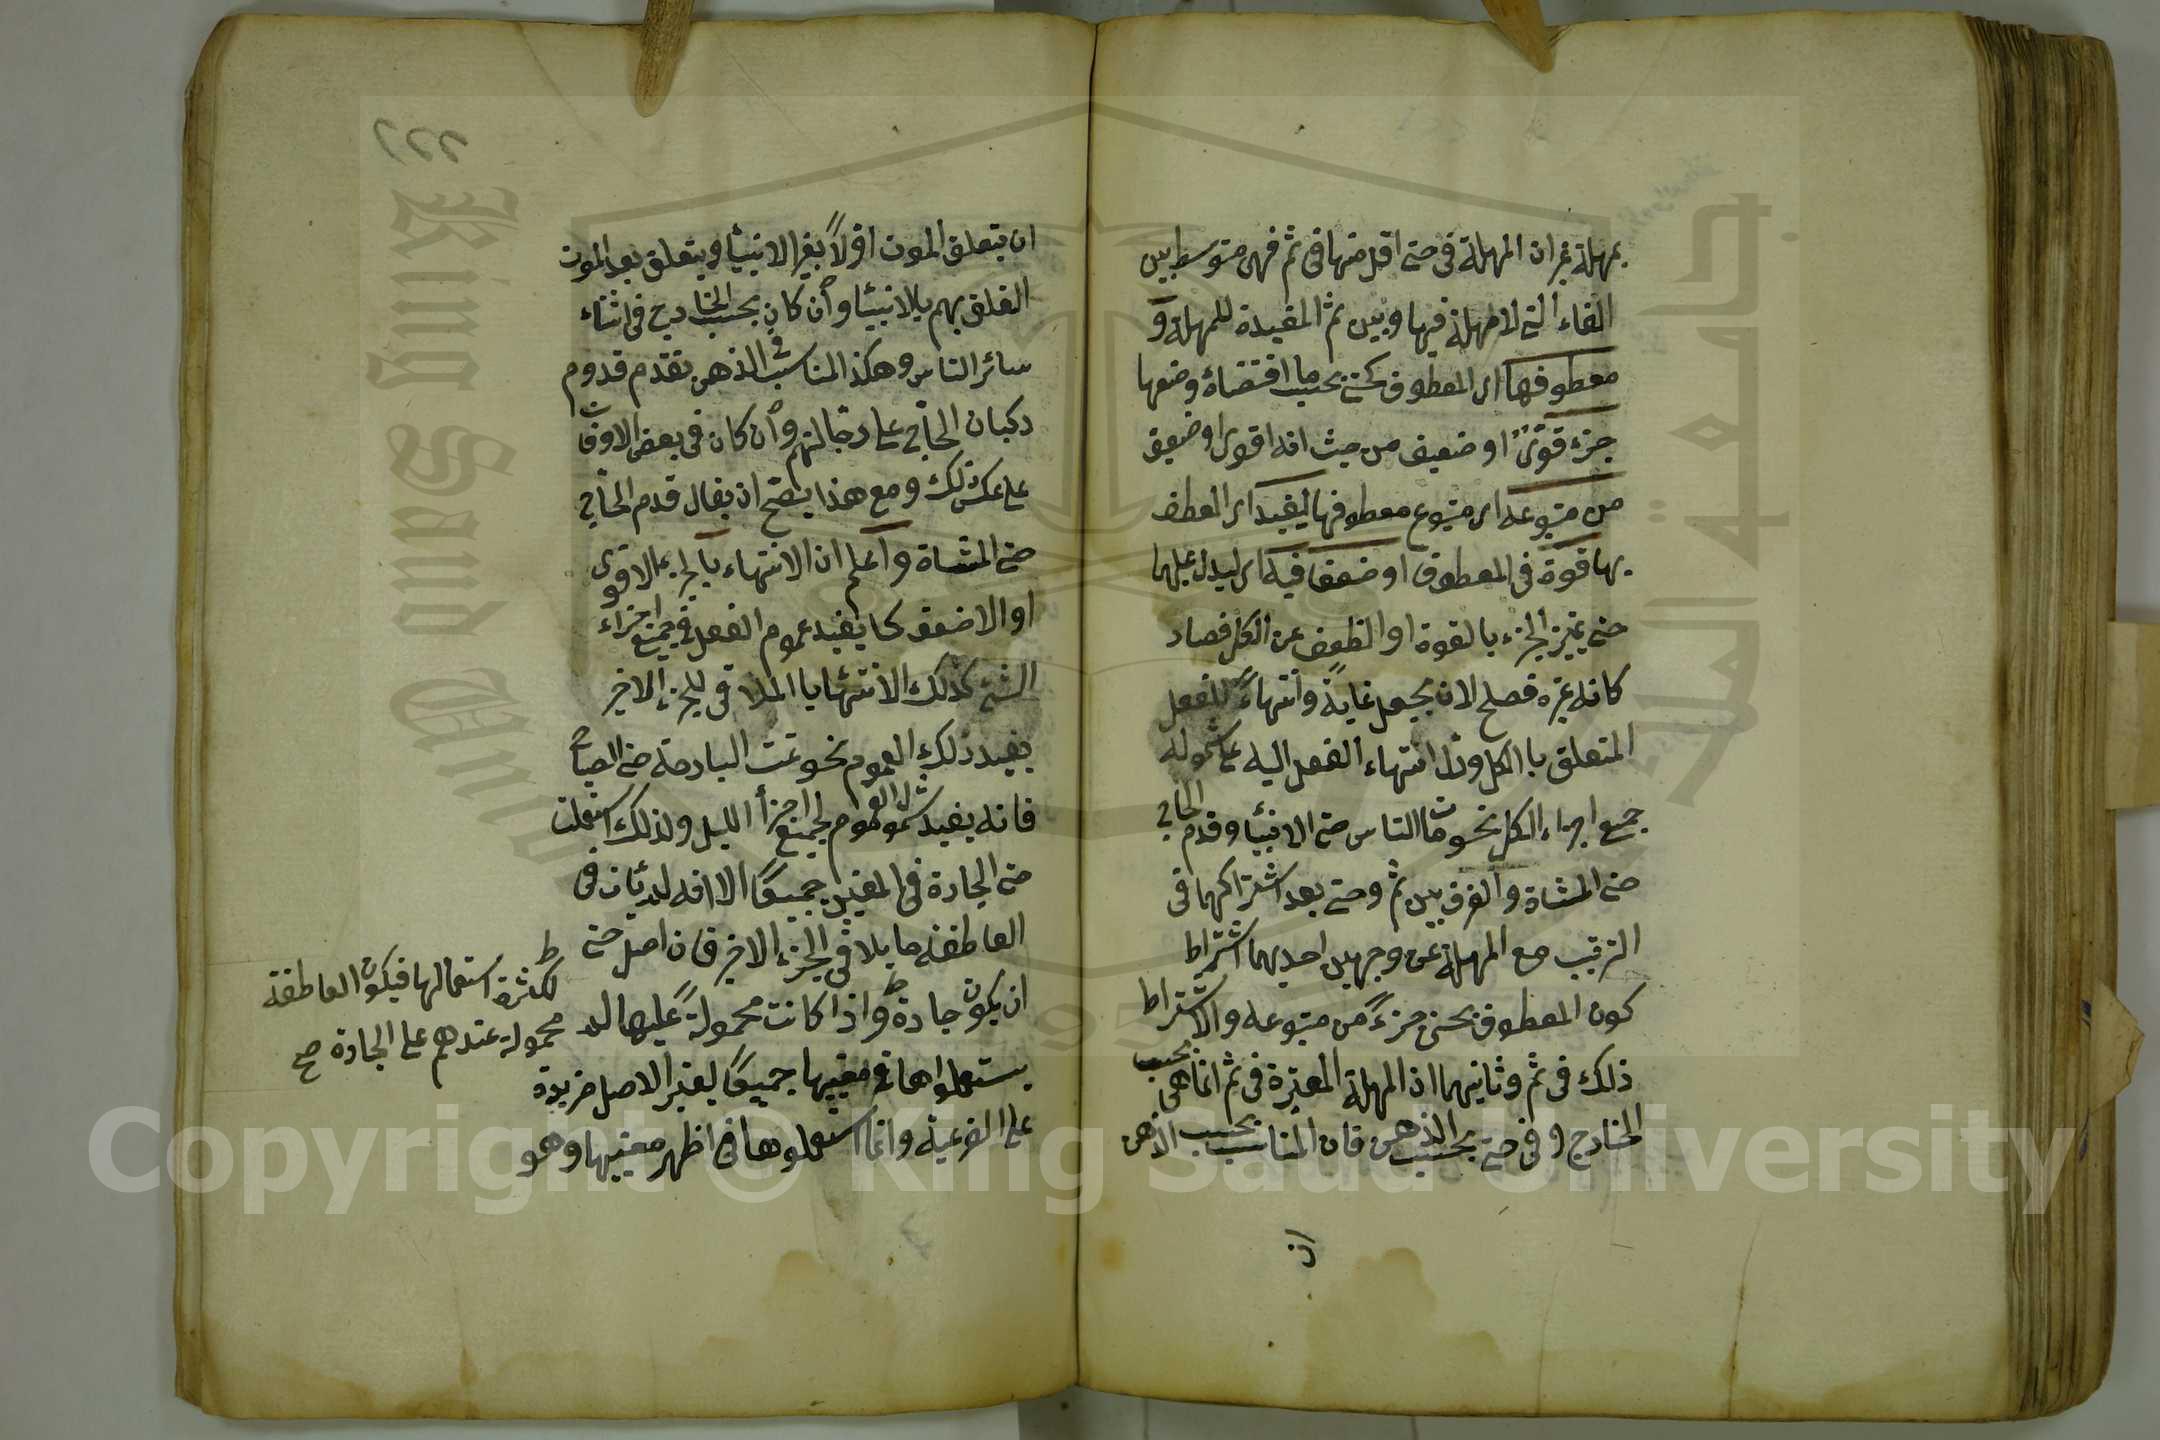 بمهلة غير ان المهلة فى حتى اقل منها فى ثم فهى متوسط بين
الفاء التى لا مهلة فيها وبين ثم المفيدة للمهلة و
معطوفها اى المعطوف بحتى بحسب ما اقتضاه وضعها
جزء قوى او ضعيف من حيث انه اقوى او ضعيف
من متبوعه اى متبوع معطوفها ليفيد اى العطف
بها قوة فى المعطوف او ضعفا فيه اى ليدل عليهما
حتى يتميز الجزء بالقوة او الضعف عن الكل فصار
كانه غيره فصلح لان يجعل غاية وانتهاء للفعل
المتعلق بالكل ودل انتهاء الفعل اليه على شموله
جميع اجزاء الكل نحو مات الناس حتى الانبياء وقدم الحاج
حتى المشاة والفرق بين ثم وحتى بعد اشتراكهما فى
الترتيب مع المهلة من وجهين احديهما اشتراط
كون المعطوف بحتى جزءً من متبوعه والا اشتراط
ذلك فى ثم وثانيهما ان المهلة المعتبرة فى ثم انما هى بحسب
الخارج وفى حتى بحسب الذهن فان المناسب بحسب الذهن
ان
٢٢٦
ان يتعلق الموت اولاً بغير الانبياء ويتعلق بعد الموت
التعلق بهم بالانبياء وان كان بحسب الخارج فى اثناء
سائر الناس وهكذا المناسب فى الذهن تقدم قدوم
ركبان الحاج على رجالتهم وان كان فى بعض الاوقات
على عكس ذلك ومع هذا يصح ان يقال قدم الحاج
حتى المشاة واعلم ان الانتهاء بالجزء الاقوى
او الاضعف كما يفيد عموم الفعل فى جميع اجزاء
الشئ كذلك الانتهاء بالملاقى للجزء الاخير
يفيد ذلك العموم نحو نمت البارحة حتى الصباح
فانه يفيد شمول النوم لجميع اجزاء الليل ولذلك استعملت
حتى الجارة فى المعنيين جميعًا الا انه لم يأت فى
العاطفة ما يلاقى الجزء الاخير فان اصل حتى
ان يكون جارة واذا كانت محمولةً عليها لم
يستعملوها فى معنييها جميعًا ليبقى الاصل مزيدة
على الفرعية وانما استعملوها فى اظهر معنييها وهو
لكثرة استعمالها فيكون العاطفة
محمولة عندهم على الجارة صح
Copyright © King Saud University
King Saud University
جامعة الملك سعود
1957